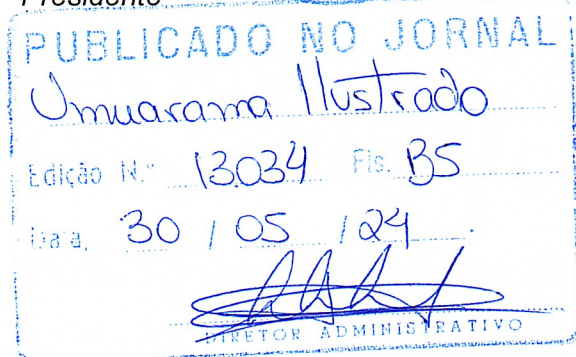 Presidente
PUBLICADO NO JORNAL
Umuarama Ilustrado
Edição N.º 13.034 Fls. B5
Data, 30 / 05 / 24
DIRETOR ADMINISTRATIVO